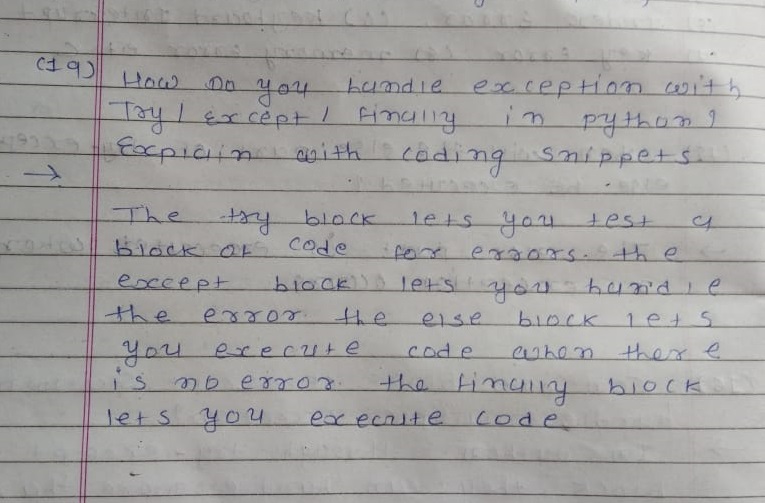 (19) How Do you handle exception with
Try / Except / Finally in python?
Explain with coding snippets.
→
The try block lets you test a
block of code for errors. the
except block lets you handle
the error. the else block lets
you execute code when there
is no error. the finally block
lets you execute code